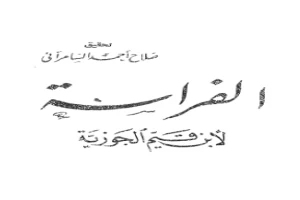 تحقيق
صلاح أحمد السامرائي
الفراسة
لابن قيم الجوزية